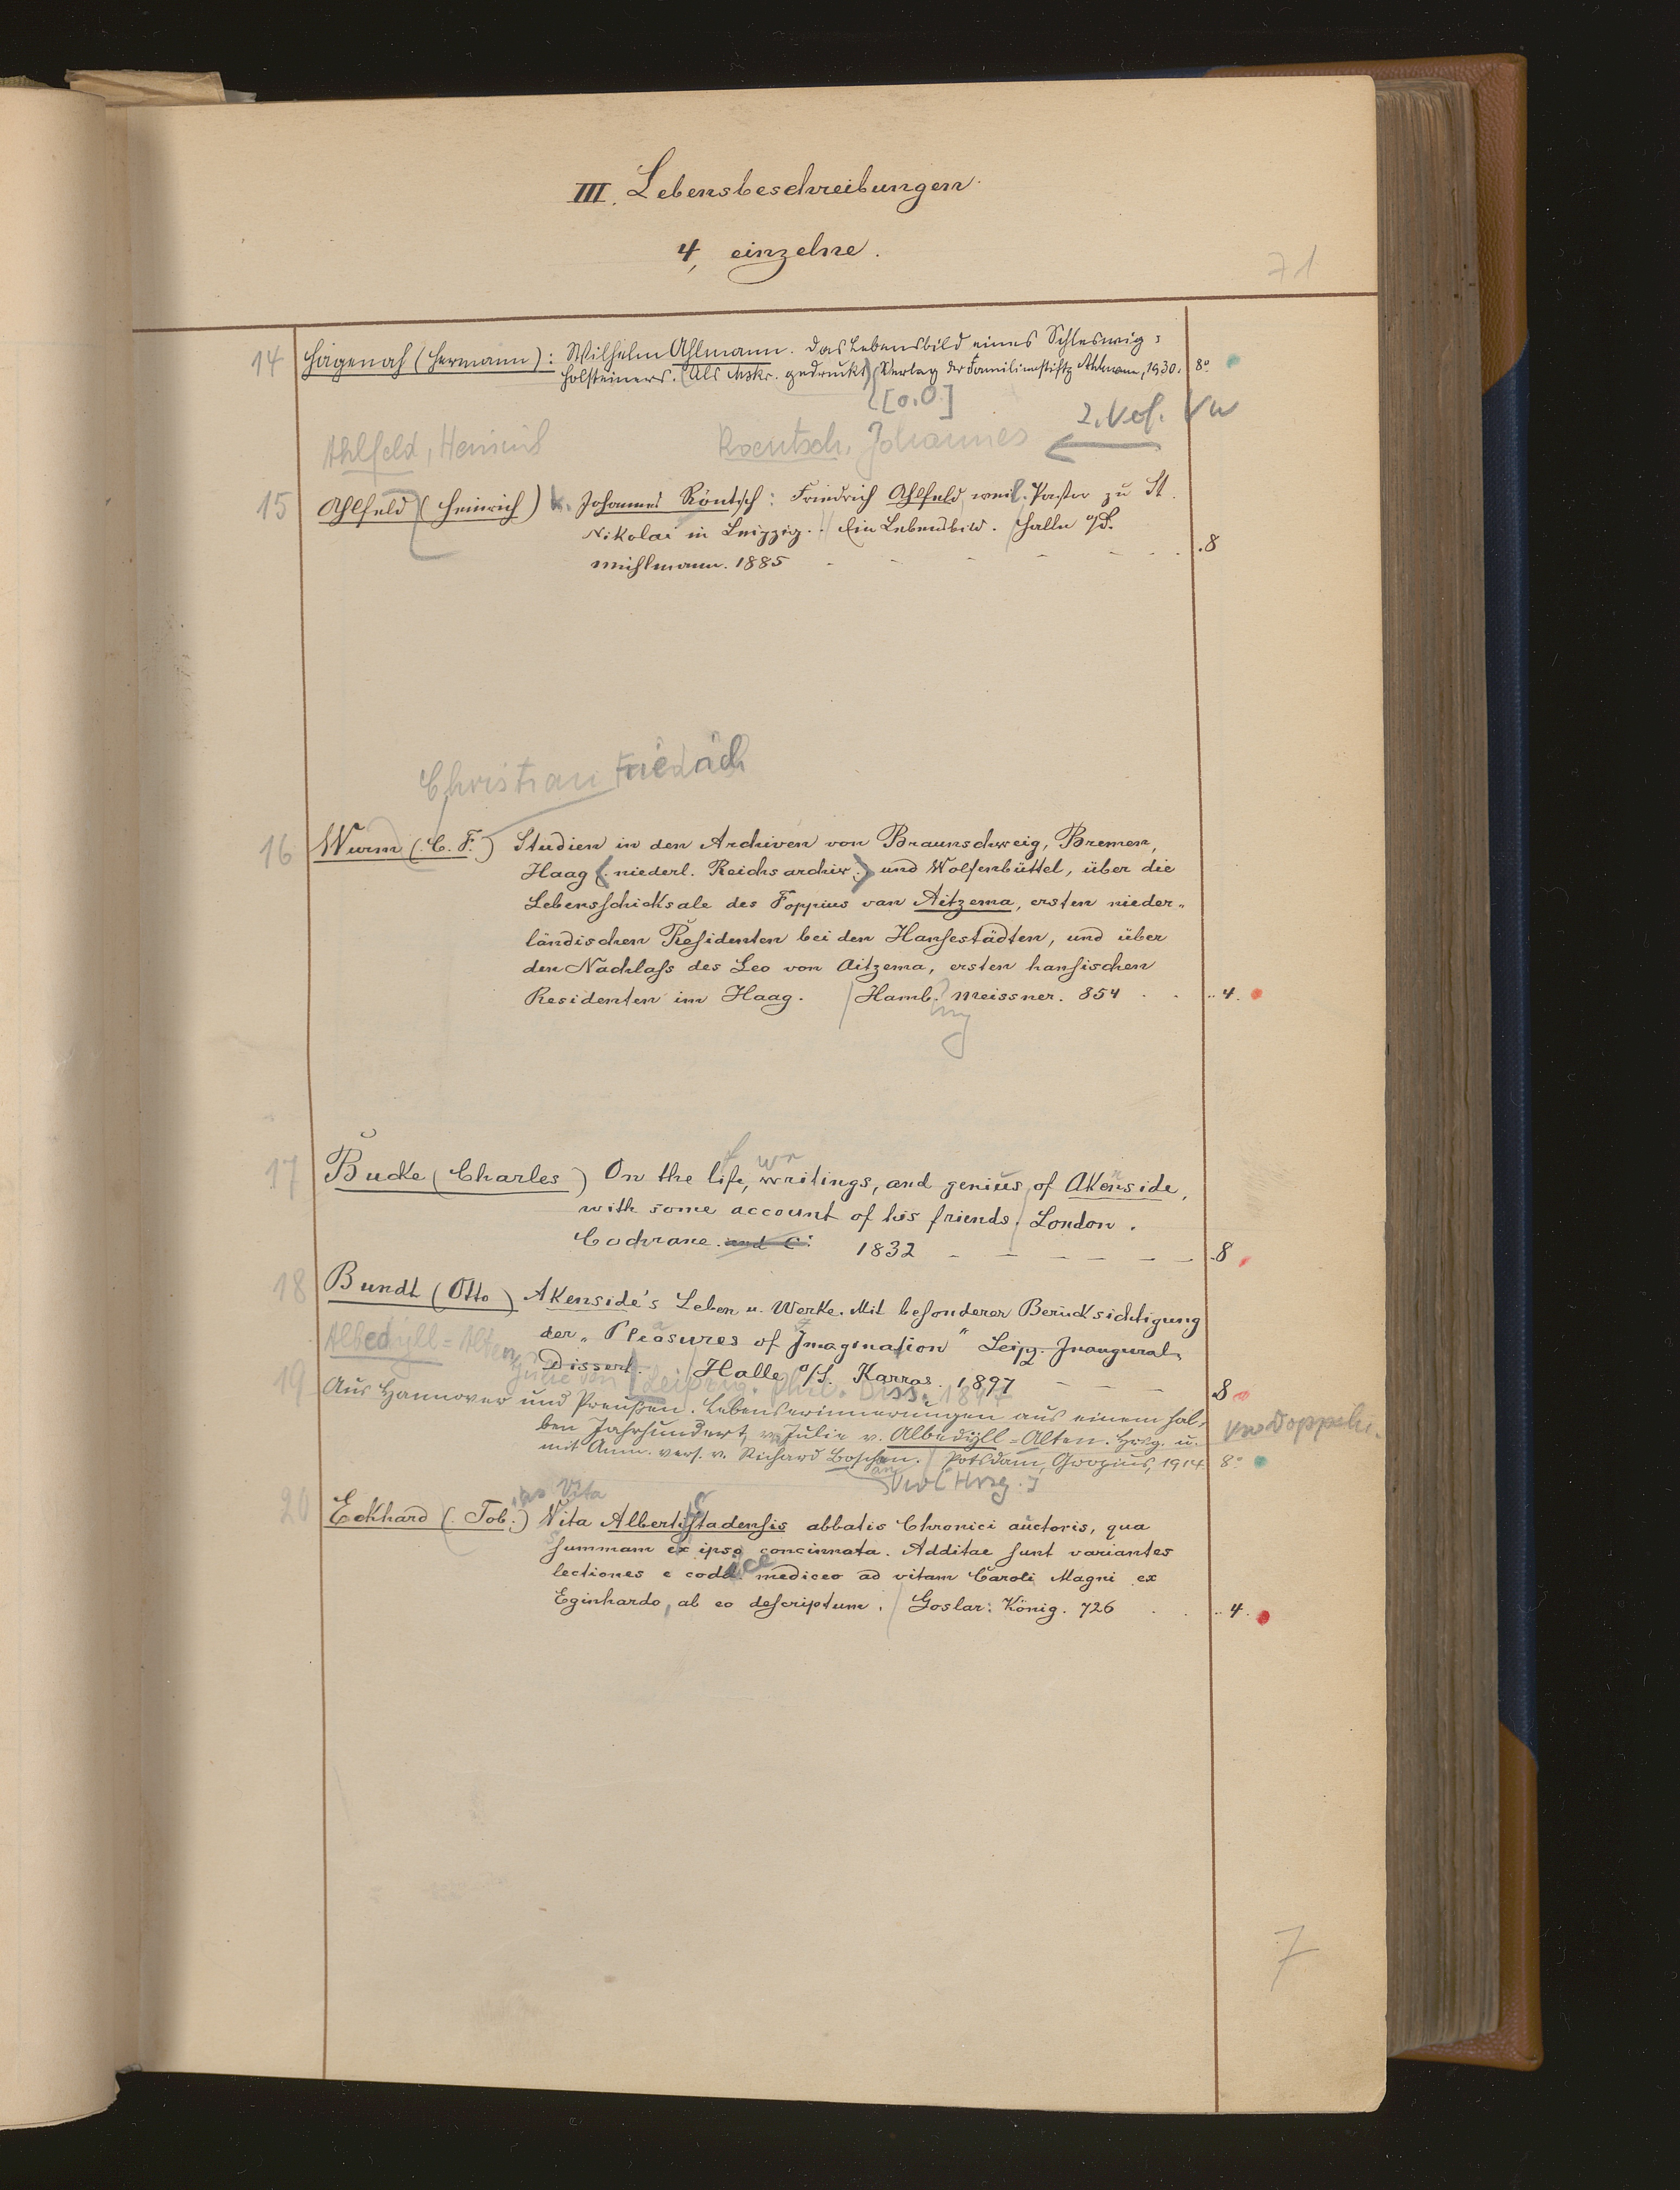 III. Lebensbeschreibungen.
4, einzelne.
71
14 Hagenah (Hermann): Wilhelm Ahlmann. Das Lebensbild eines Schleswig-
Holsteiners. (Als Mskr. gedruckt) Verlag der Familienstiftg Ahlmann, 1930. 8°
[o.O.]
2. Verf. Vw
Ahlfeld, Heinrich Roentsch, Johannes
15 Ahlfeld (Heinrich) u. Johannes Röntsch: Friedrich Ahlfeld weil. Pastor zu St.
Nikolai in Leipzig. Ein Lebensbild. Halle a/S.
Mühlmann. 1885 - - - - - 8
Christian Friedrich
16 Wurm (C. F.) Studien in den Archiven von Braunschweig, Bremen,
Haag (niederl. Reichsarchiv.) und Wolfenbüttel, über die
Lebensschicksale des Foppius van Aitzema, ersten nieder-
ländischen Residenten bei den Hansestädten, und über
den Nachlass des Leo von Aitzema, ersten hansischen
Residenten im Haag. / Hamb. Meissner. 854 . . 4.
urg
17 Bucke (Charles) On the life, writings, and genius, of Akenside,
with some account of his friends. London.
Cochrane and C. 1832 - - - - - 8
18 Bundt (Otto) Akenside's Leben u. Werke. Mit besonderer Berücksichtigung
der „Pleasures of Imagination" Leipz. Inaugural-
Dissert. / Halle a/S. Karras. 1897 - - - 8
Albedyll-Alten, Julie von / Leipzig. phil. Diss. 1897
19 Aus Hannover und Preußen. Lebenserinnerungen aus einem hal-
ben Jahrhundert, v. Julie v. Albedyll-Alten. Hrsg. u.
mit Anm. vers. v. Richard Boschan. / Potsdam, Gropius, 1914. 8°
Vw [Hrsg.]
20 Eckhard (Tob.) Vita Alberti Stadensis abbatis Chronici auctoris, qua
summam ex ipso concinnata. Additae sunt variantes
lectiones e codice mediceo ad vitam Caroli Magni ex
Eginhardo, ab eo descriptum. / Goslar: König. 726 . . 4.
7